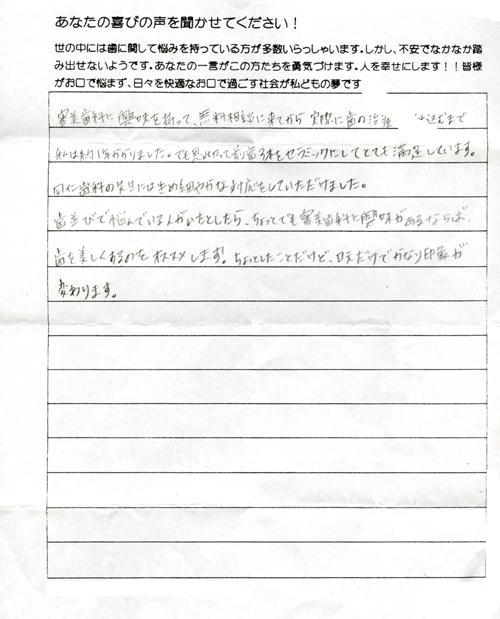 あなたの喜びの声を聞かせてください！
世の中には歯に関して悩みを持っている方が多数いらっしゃいます。しかし、不安でなかなか踏
み出せないようです。あなたの一言がこの方たちを勇気づけます。人を幸せにします！！皆様
がお口で悩まず、日々を快適なお口で過ごす社会が私どもの夢です
審美歯科に興味を持って、無料相談に来てから実際に歯の治療 込むまで
私は約1年かかりました。でも思い切って前歯3本をセラミックにしてとても満足しています。
同仁歯科の先生にはきめ細やかな対応をしていただけました。
歯並びで悩んでいる人がいたとしたら、ちょっとでも審美歯科に興味があるならば、
歯を美しくするのをオススメします！ちょっとしたことだけど、口元だけでかなり印象が
変わります。